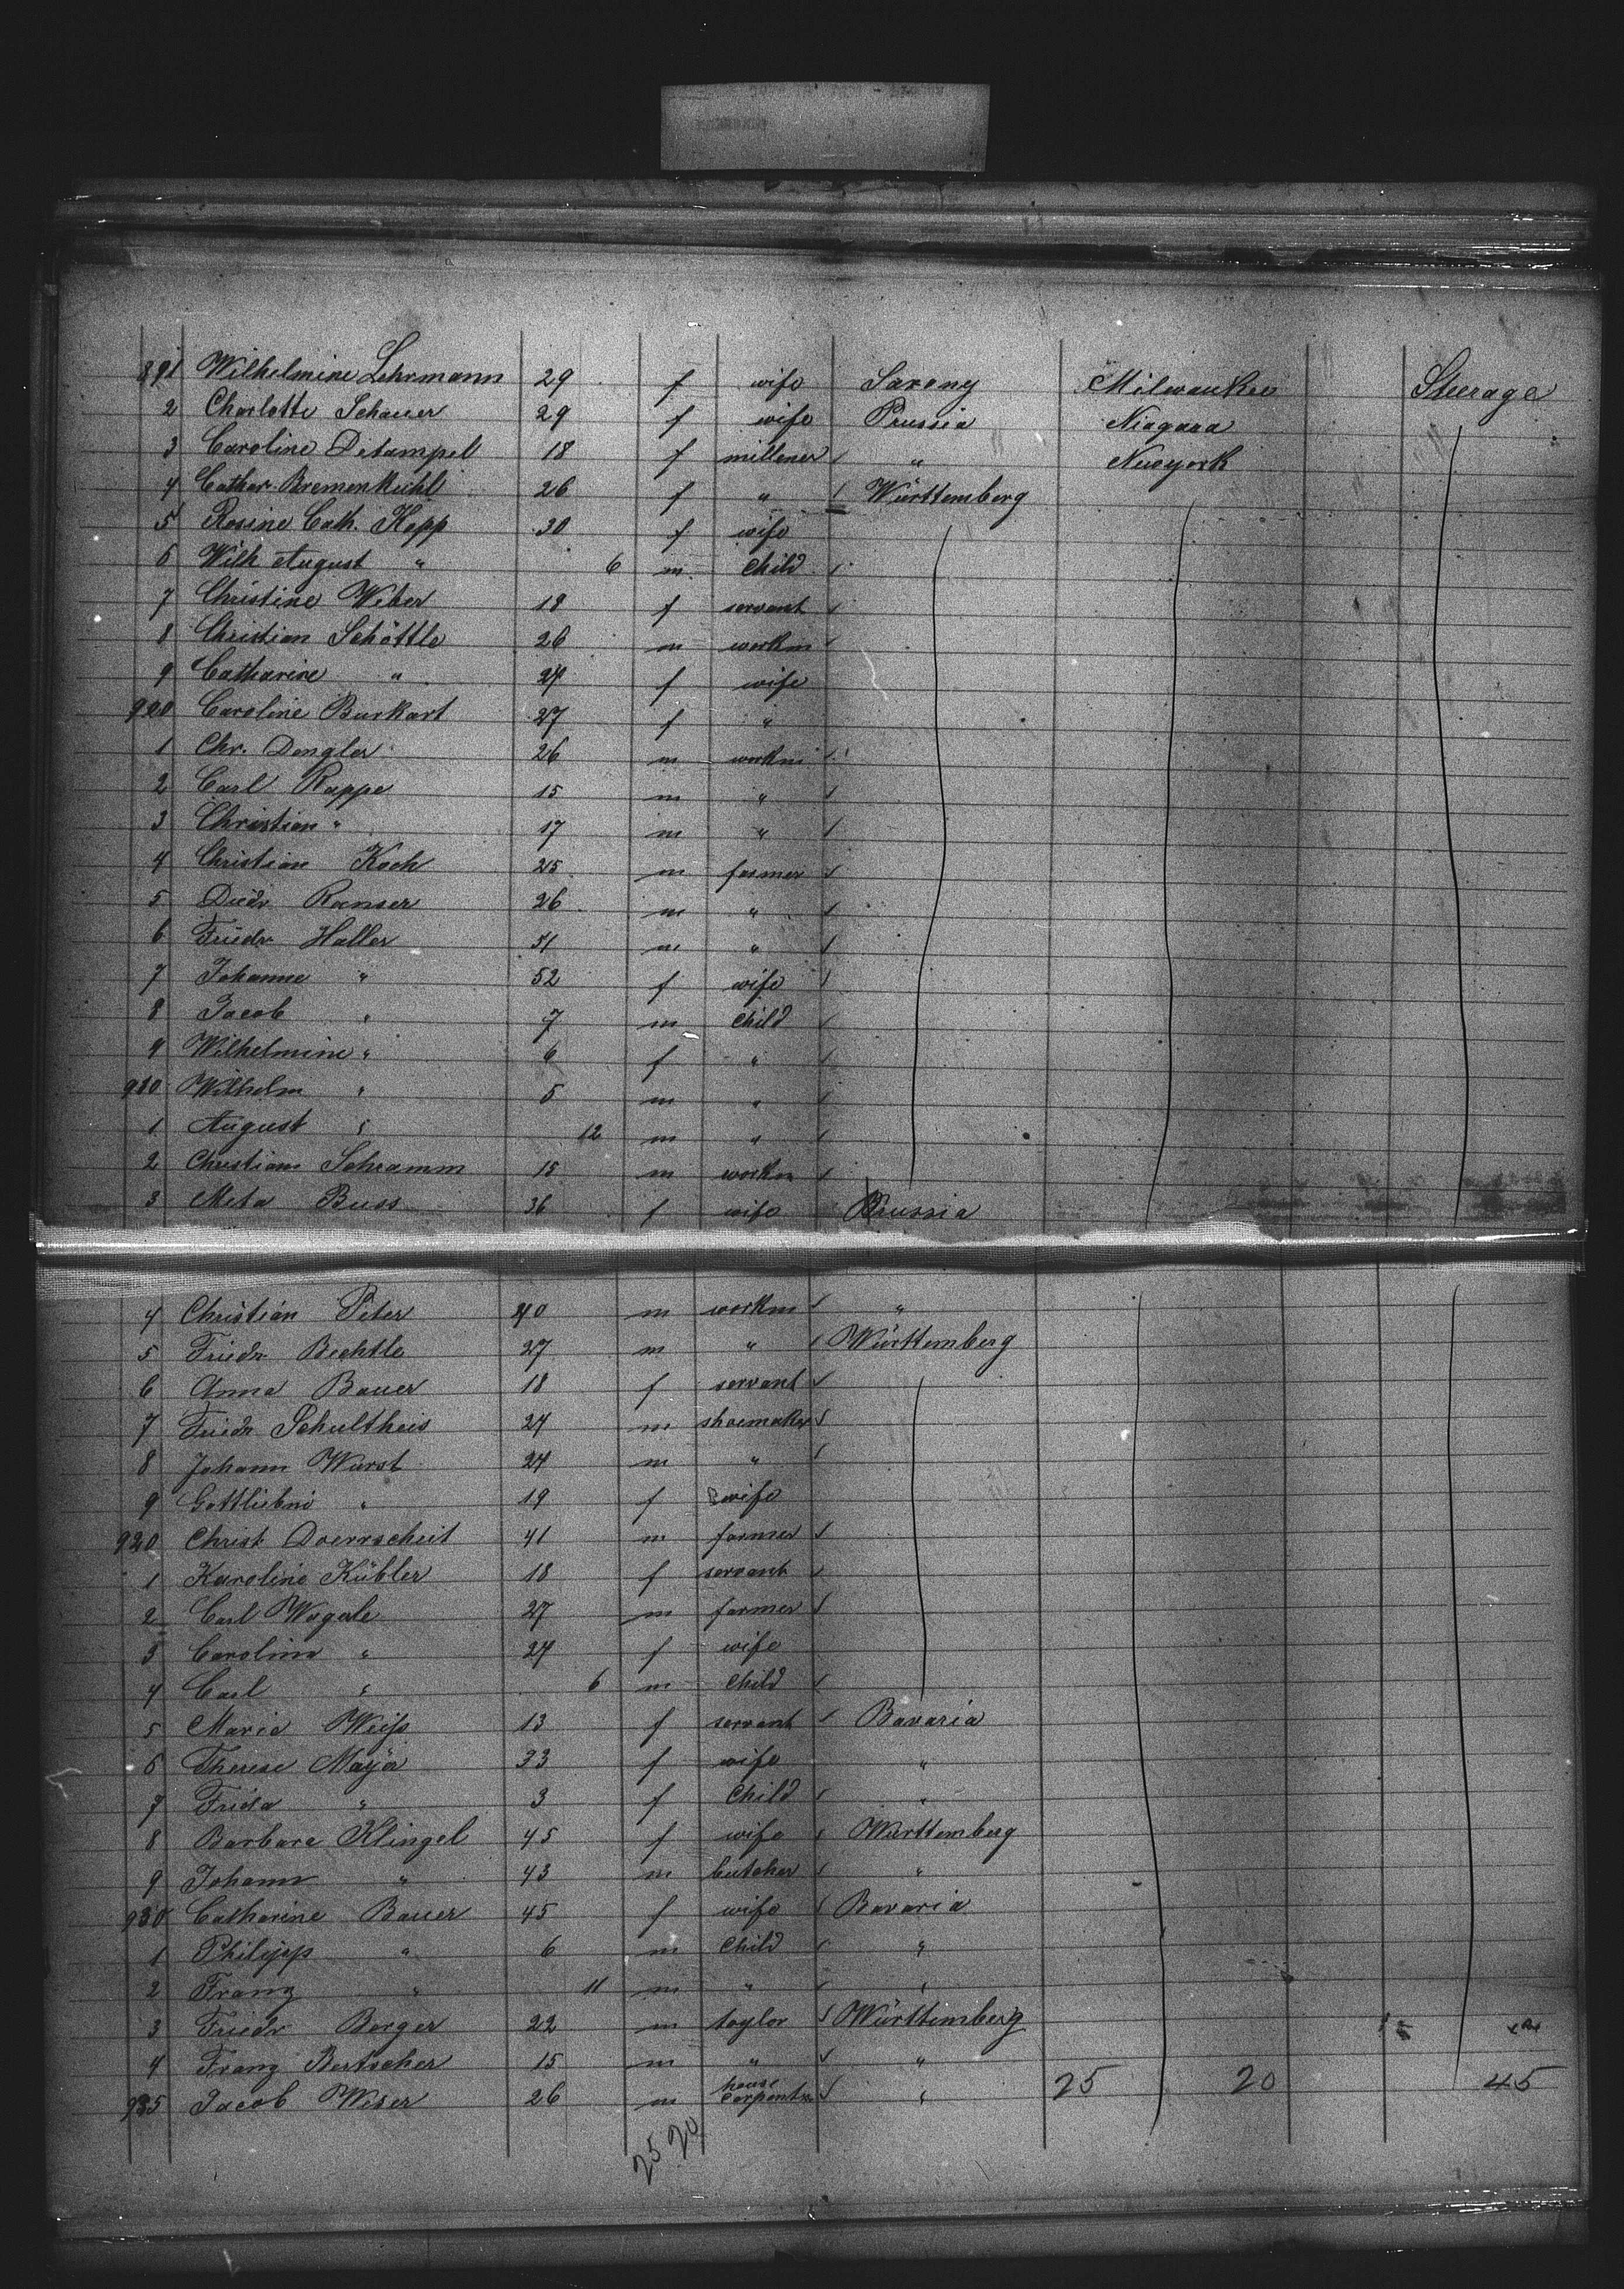 891 Wilhelmine Lehrmann 29 f wife Saxony Milwaukee Steerage
2 Charlotte Schauer 29 f wife Prussia Niagara
3 Caroline Ditampel 18 f millener " Newyork
4 Cathar. Bremenkühl 26 f " Württemberg
5 Rosine Cath. Kopp 30 f wife
6 Wilh August " 6 m Child
7 Christine Weber 18 f servant
8 Christian Schöttle 26 m workm
9 Catharine " 24 f wife
900 Caroline Burkart 27 f "
1 Chr. Dengler 26 m workm
2 Carl Rappe 15 m "
3 Christian " 17 m "
4 Christian Koch 25 m farmer
5 Diedr Ranser 26 m "
6 Friedr Haller 51 m "
7 Johanne " 52 f wife
8 Jacob " 7 m Child
9 Wilhelmine " 6 f "
910 Wilhelm " 5 m "
1 August " 12 m "
2 Christian Schramm 15 m workm
3 Meta Buss 36 f wife Prussia
4 Christian Peter 40 m workm "
5 Friedr Bechtle 27 m " Württemberg
6 Anna Bauer 18 f servant
7 Friedr Schultheis 24 m shoemaker
8 Johann Wurst 24 m "
9 Gottliebni " 19 f wife
920 Christ. Doerrscheit 41 m farmer
1 Karoline Kübler 18 f servant
2 Carl Wagele 27 m farmer
3 Carolina " 24 f wife
4 Carl " 6 m Child
5 Maria Weiß 13 f servant Bavaria
6 Therese Mayer 33 f wife "
7 Frida " 3 f Child "
8 Barbara Klingel 45 f wife Württemberg
9 Johann " 43 m butcher "
930 Catharine Bauer 45 f wife Bavaria
1 Philipp " 6 m Child "
2 Franz " 11 m " "
3 Friedr Berger 22 m taylor Württemberg
4 Franz Bertscher 15 m " "
935 Jacob Weser 26 m house Carpenter " 25 20 45
25 20